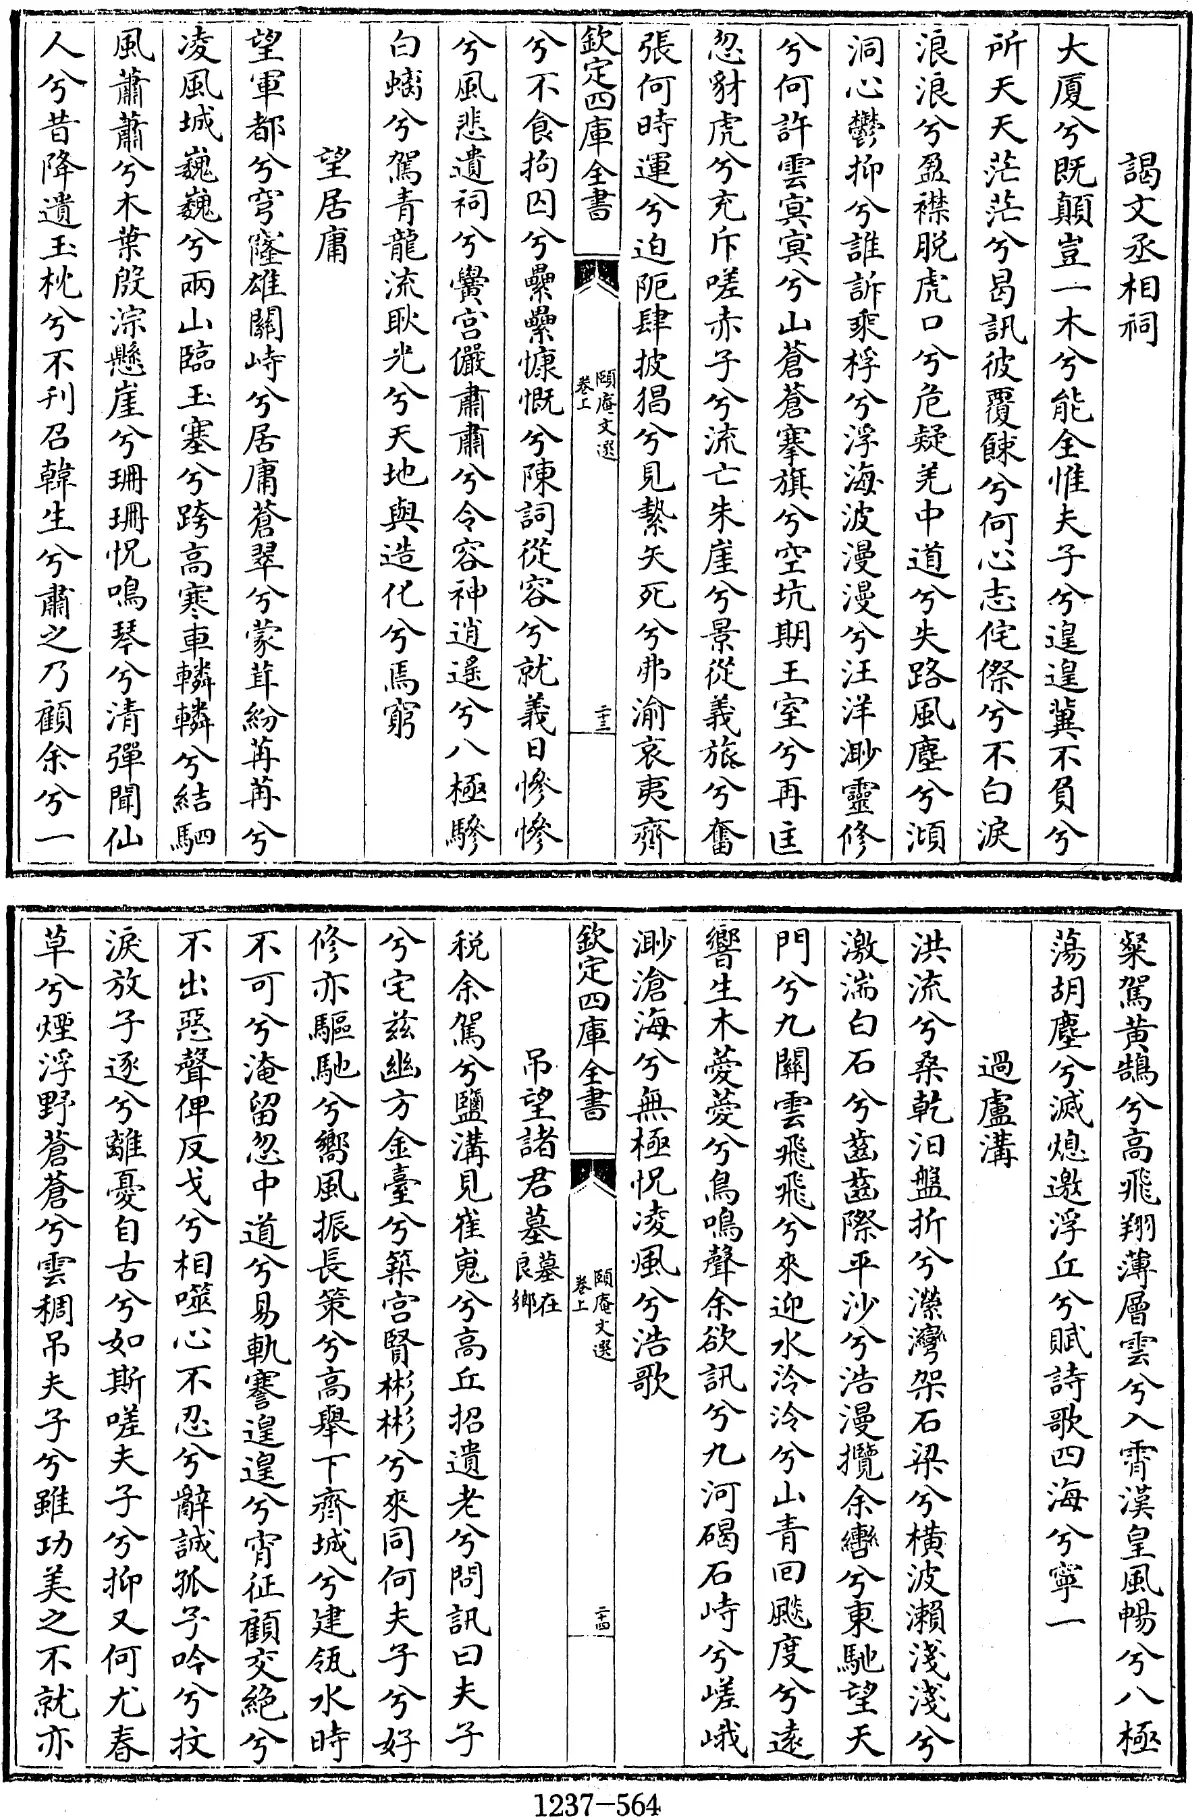 謁文丞相祠
大厦兮既顛豈一木兮能全惟夫子兮遑遑冀不負兮
所天天茫茫兮曷訊彼覆餗兮何心志侘傺兮不白淚
浪浪兮盈襟脱虎口兮危疑羌中道兮失路風塵兮澒
洞心鬱抑兮誰訴乘桴兮浮海波漫漫兮汪洋渺靈修
兮何許雲冥冥兮山蒼蒼搴旗兮空坑期王室兮再匡
忽豺虎兮充斥嗟赤子兮流亡朱崖兮景從義旅兮奮
張何時運兮迫阨肆披猖兮見縶矢死兮弗渝哀夷齊
欽定四庫全書
頤庵文選
卷上
二十三
兮不食拘囚兮纍纍慷慨兮陳詞從容兮就義日慘慘
兮風悲遺祠兮黌宮儼肅肅兮令容神逍遥兮八極驂
白螭兮駕青龍流耿光兮天地與造化兮焉窮
望居庸
望軍都兮穹窿雄關峙兮居庸蒼翠兮蒙茸紛苒苒兮
凌風城巍巍兮兩山臨玉塞兮跨高寒車轔轔兮結駟
風蕭蕭兮木葉殷淙懸崖兮珊珊怳鳴琴兮清彈聞仙
人兮昔降遺玉枕兮不刋召韓生兮肅之乃顧余兮一
粲駕黄鵠兮高飛翔薄層雲兮入霄漢皇風暢兮八極
蕩胡塵兮滅熄邀浮丘兮賦詩歌四海兮寧一
過盧溝
洪流兮桑乾汩盤折兮瀠灣架石梁兮横波瀨淺淺兮
激湍白石兮齒齒際平沙兮浩漫攬余轡兮東馳望天
門兮九關雲飛飛兮來迎水泠泠兮山青回飈度兮遠
響生木薆薆兮鳥鳴聲余欲訊兮九河碣石峙兮嵯峨
渺滄海兮無極怳凌風兮浩歌
欽定四庫全書
頤庵文選
卷上
二十四
吊望諸君墓墓在良鄉
税余駕兮鹽溝見崔嵬兮高丘招遺老兮問訊曰夫子
兮宅兹幽方金臺兮築宫賢彬彬兮來同何夫子兮好
修亦驅馳兮嚮風振長策兮高舉下齊城兮建瓴水時
不可兮淹留忽中道兮易軌謇遑遑兮宵征顧交絶兮
不出惡聲俾反戈兮相噬心不忍兮辭誠孤子吟兮抆
淚放子逐兮離憂自古兮如斯嗟夫子兮抑又何尤春
草兮煙浮野蒼蒼兮雲稠吊夫子兮雖功美之不就亦
1237—564